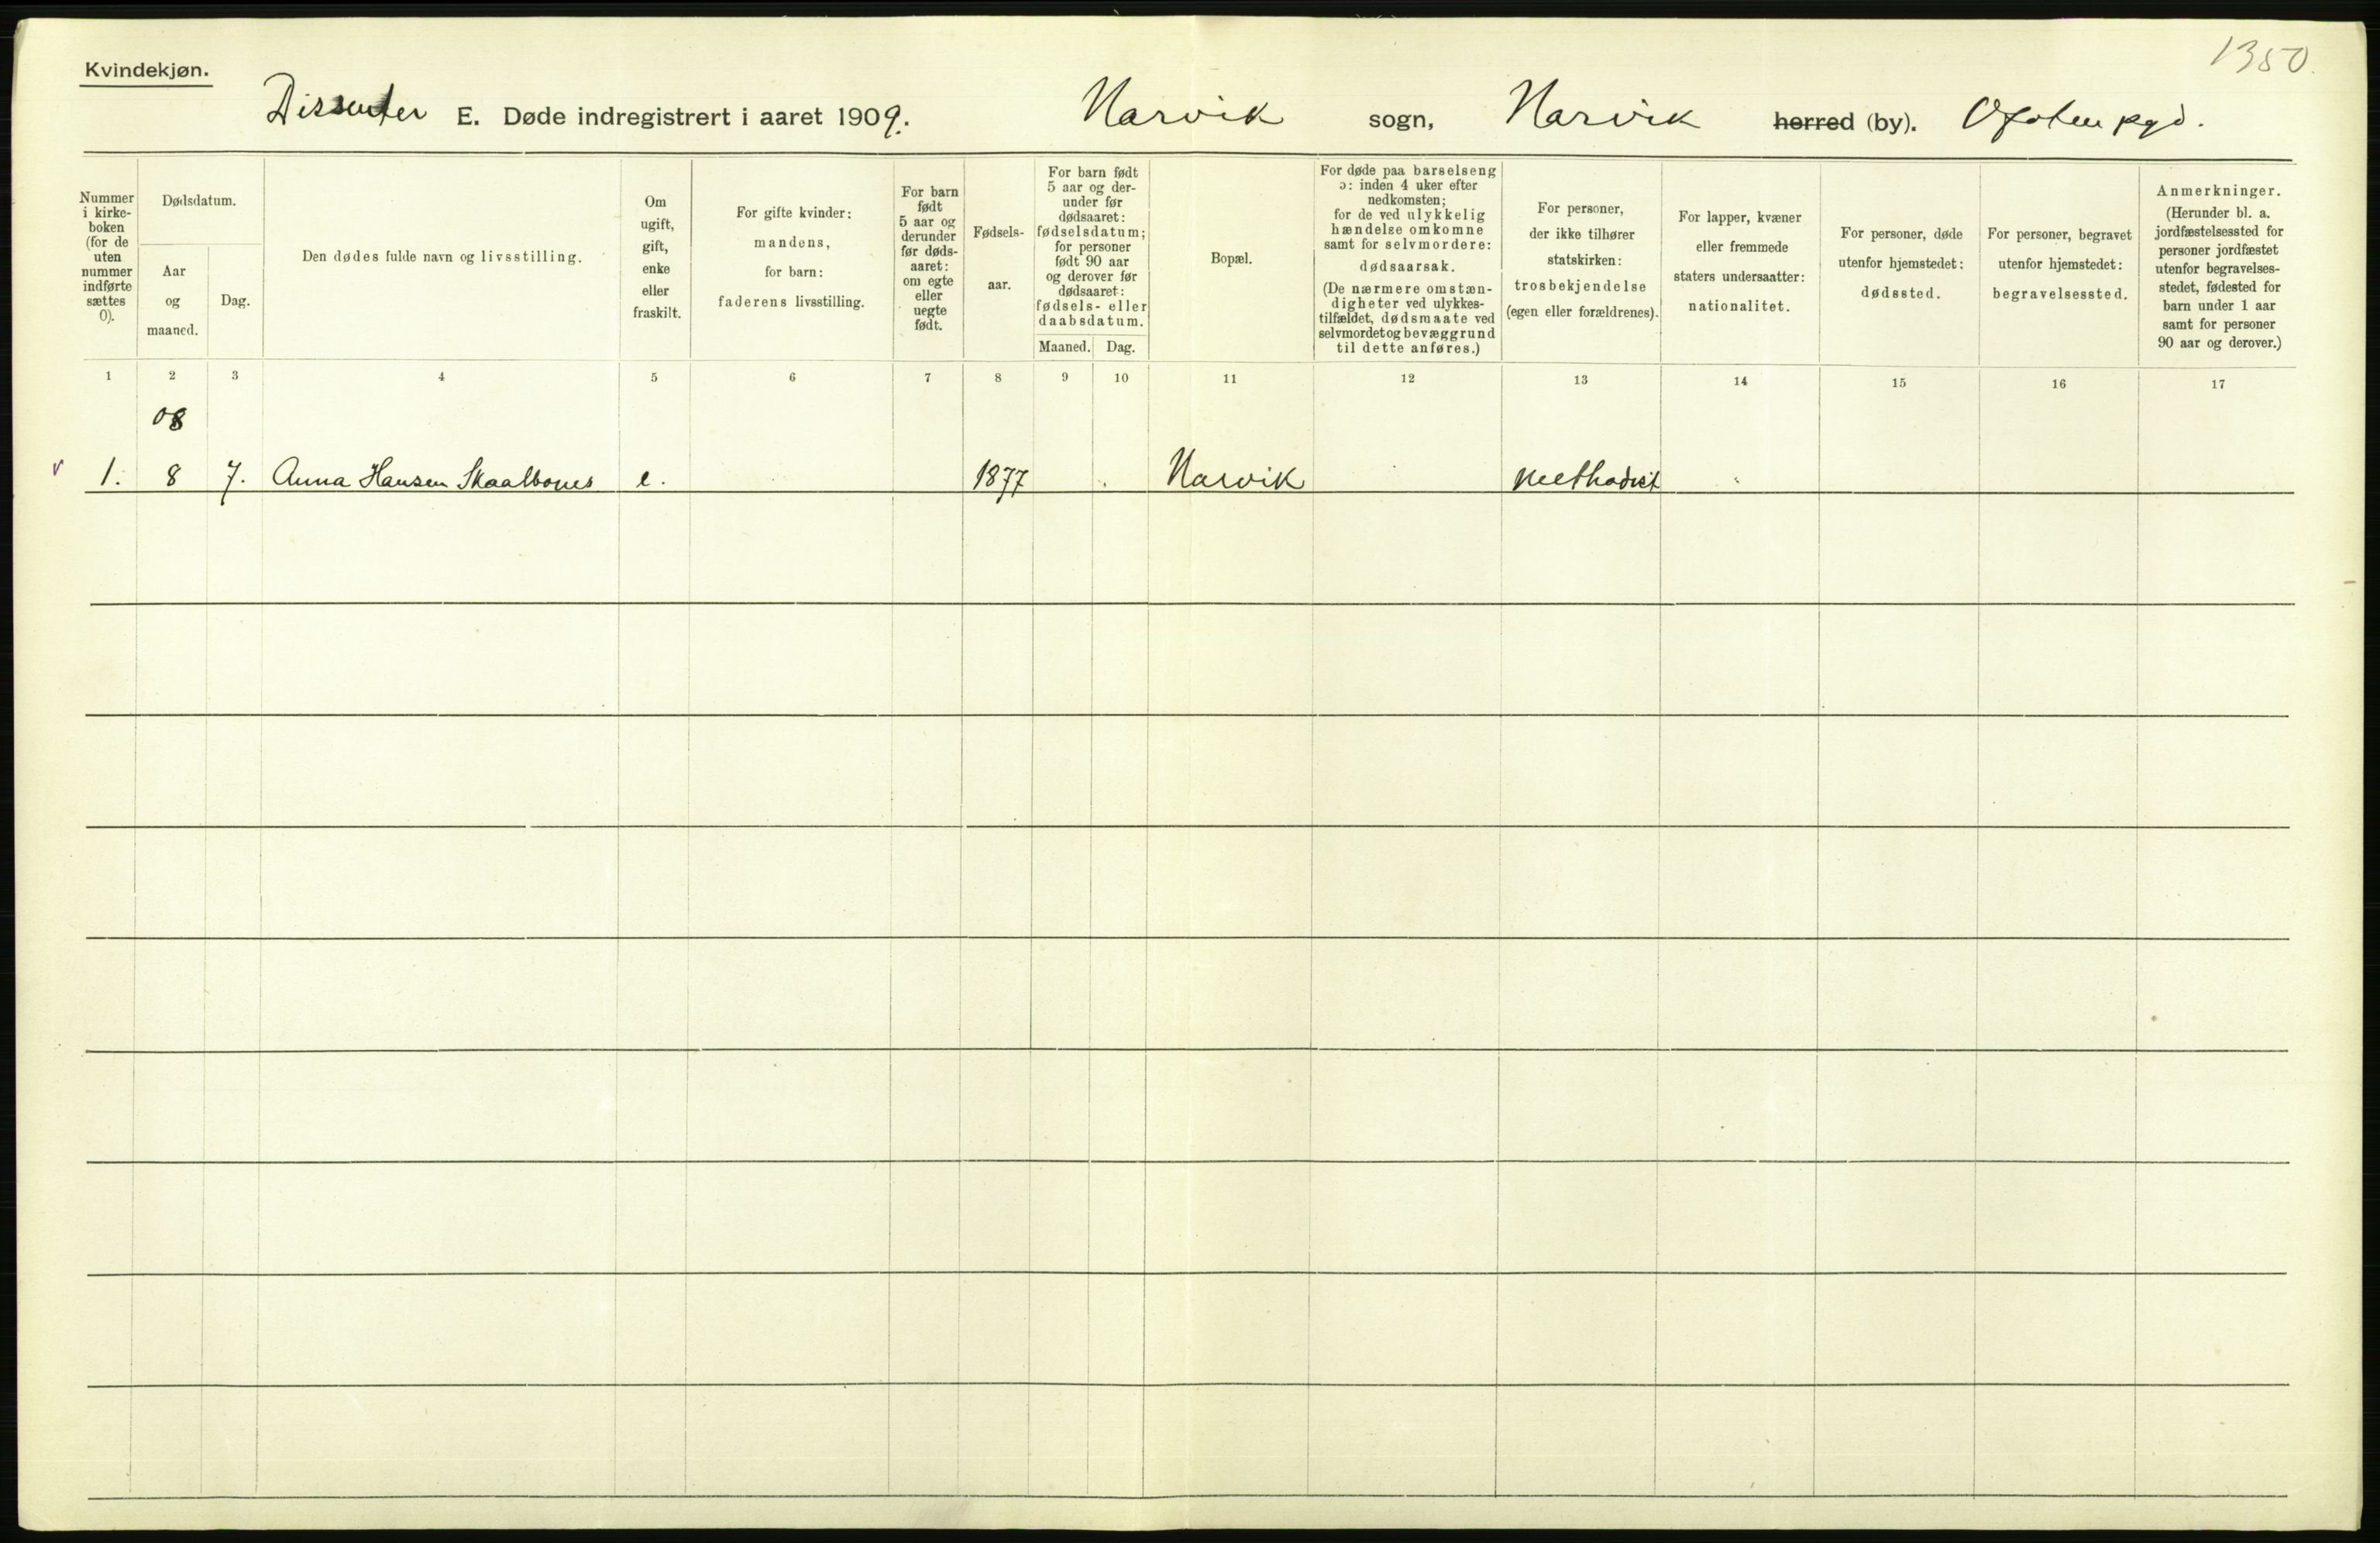 1350.
Kvindekjøn.
Dissenter E. Døde indregistrert i aaret 1909. Narvik sogn, Narvik herred (by). Ofoten pgd.
Nummer i kirke- boken (for de uten nummer indførte sættes 0).
Dødsdatum.
Aar og maaned.
Dag.
Den dødes fulde navn og livsstilling.
Om ugift, gift, enke eller fraskilt.
For gifte kvinder: mandens, for barn: faderens livsstilling.
For barn født 5 aar og derunder før døds- aaret: om egte eller uegte født.
Fødsels- aar.
For barn født 5 aar og der- under før dødsaaret: fødselsdatum; for personer født 90 aar og derover før dødsaaret: fødsels- eller daabsdatum.
Maaned. Dag.
Bopæl.
For døde paa barselseng ɔ: inden 4 uker efter nedkomsten; for de ved ulykkelig hændelse omkomne samt for selvmordere: dødsaarsak. (De nærmere omstæn- digheter ved ulykkes- tilfældet, dødsmaate ved selvmordet og bevæggrund til dette anføres.)
For personer, der ikke tilhører statskirken: trosbekjendelse (egen eller forældrenes).
For lapper, kvæner eller fremmede staters undersaatter: nationalitet.
For personer, døde utenfor hjemstedet: dødssted.
For personer, begravet utenfor hjemstedet: begravelsessted.
Anmerkninger. (Herunder bl. a. jordfæstelsessted for personer jordfæstet utenfor begravelses- stedet, fødested for barn under 1 aar samt for personer 90 aar og derover.)
1 2 3 4 5 6 7 8 9 10 11 12 13 14 15 16 17
08
1. 8 7. Anna Hansen Skaalbones e. 1877 Narvik Methodist